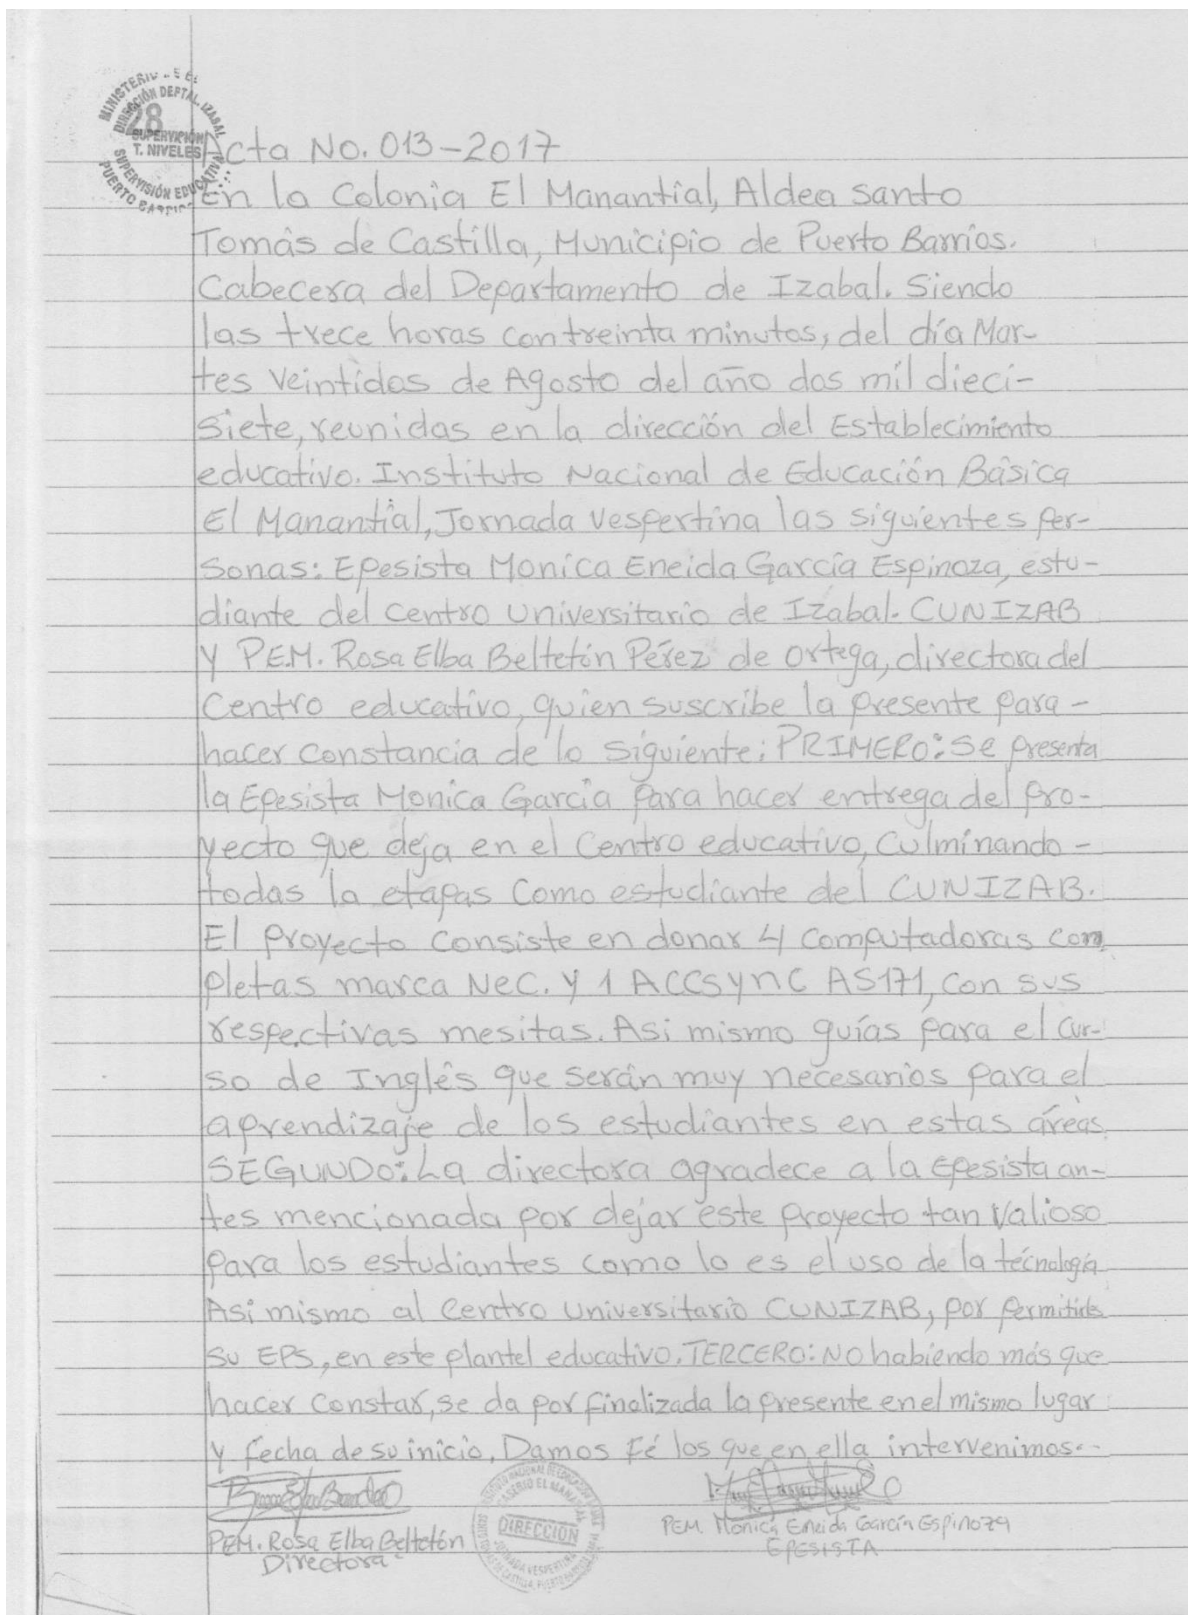 28
SUPERVISIÓN
T. NIVELES
Acta No. 013-2017
En la Colonia El Manantial, Aldea Santo
Tomás de Castilla, Municipio de Puerto Barrios.
Cabecera del Departamento de Izabal. Siendo
las trece horas con treinta minutos, del día Mar-
tes veintidos de Agosto del año dos mil dieci-
siete, reunidas en la dirección del Establecimiento
educativo. Instituto Nacional de Educación Básica
El Manantial, Jornada Vespertina las siguientes per-
sonas: Epesista Monica Eneida García Espinoza, estu-
diante del Centro Universitario de Izabal. CUNIZAB
y P.E.M. Rosa Elba Beltetón Pérez de Ortega, directora del
Centro educativo, quien suscribe la presente para -
hacer constancia de lo siguiente: PRIMERO: Se presenta
la Epesista Monica García para hacer entrega del pro-
yecto que deja en el Centro educativo, Culminando -
todas la etapas como estudiante del CUNIZAB.
El proyecto consiste en donar 4 computadoras com
pletas marca Nec. y 1 ACCSYNC AS171, con sus
respectivas mesitas. Asi mismo guías para el cur-
so de Inglés que serán muy necesarios para el
aprendizaje de los estudiantes en estas áreas.
SEGUNDO: La directora agradece a la Epesista an-
tes mencionada por dejar este proyecto tan valioso
para los estudiantes como lo es el uso de la técnología
Asi mismo al Centro Universitario CUNIZAB, por permitirles
su EPS, en este plantel educativo. TERCERO: No habiendo más que
hacer constar, se da por finalizada la presente en el mismo lugar
y fecha de su inicio. Damos Fé los que en ella intervenimos.-
PEM. Rosa Elba Beltetón
Directora
DIRECCIÓN
JORNADA VESPERTINA
PEM. Monica Eneida García Espinoza
EPESISTA